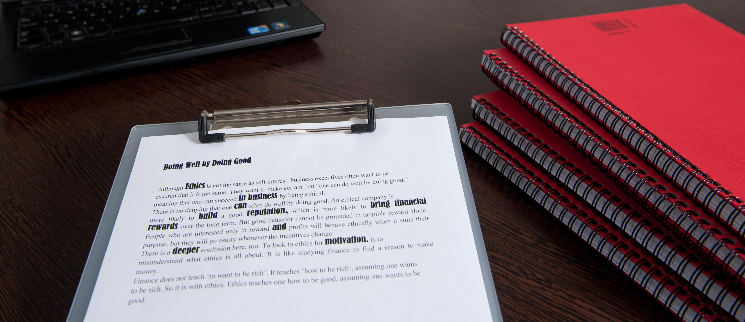 Doing Well by Doing Good
Although Ethics is not the same as self-interest. Business executives often want to
be assured that it is the same. They want to make certain that "one can do well by doing good,"
meaning that one can succeed in business by being ethical.
There is no denying that one can often do well by doing good. An ethical company is
more likely to build a good reputation, which is more likely to bring financial
rewards over the long term. But good behavior cannot be grounded in tangible reward alone.
People who are interested only in reward and profits will behave ethically when it suits their
purpose, but they will go astray whenever the incentives change.
There is a deeper confusion here, too. To look to ethics for motivation, is to
misunderstand what ethics is all about. It is like studying finance to find a reason to make
money.
Finance does not teach 'to want to be rich'. It teaches 'how to be rich', assuming one wants
to be rich. So it is with ethics. Ethics teaches one how to be good, assuming one wants to be
good.